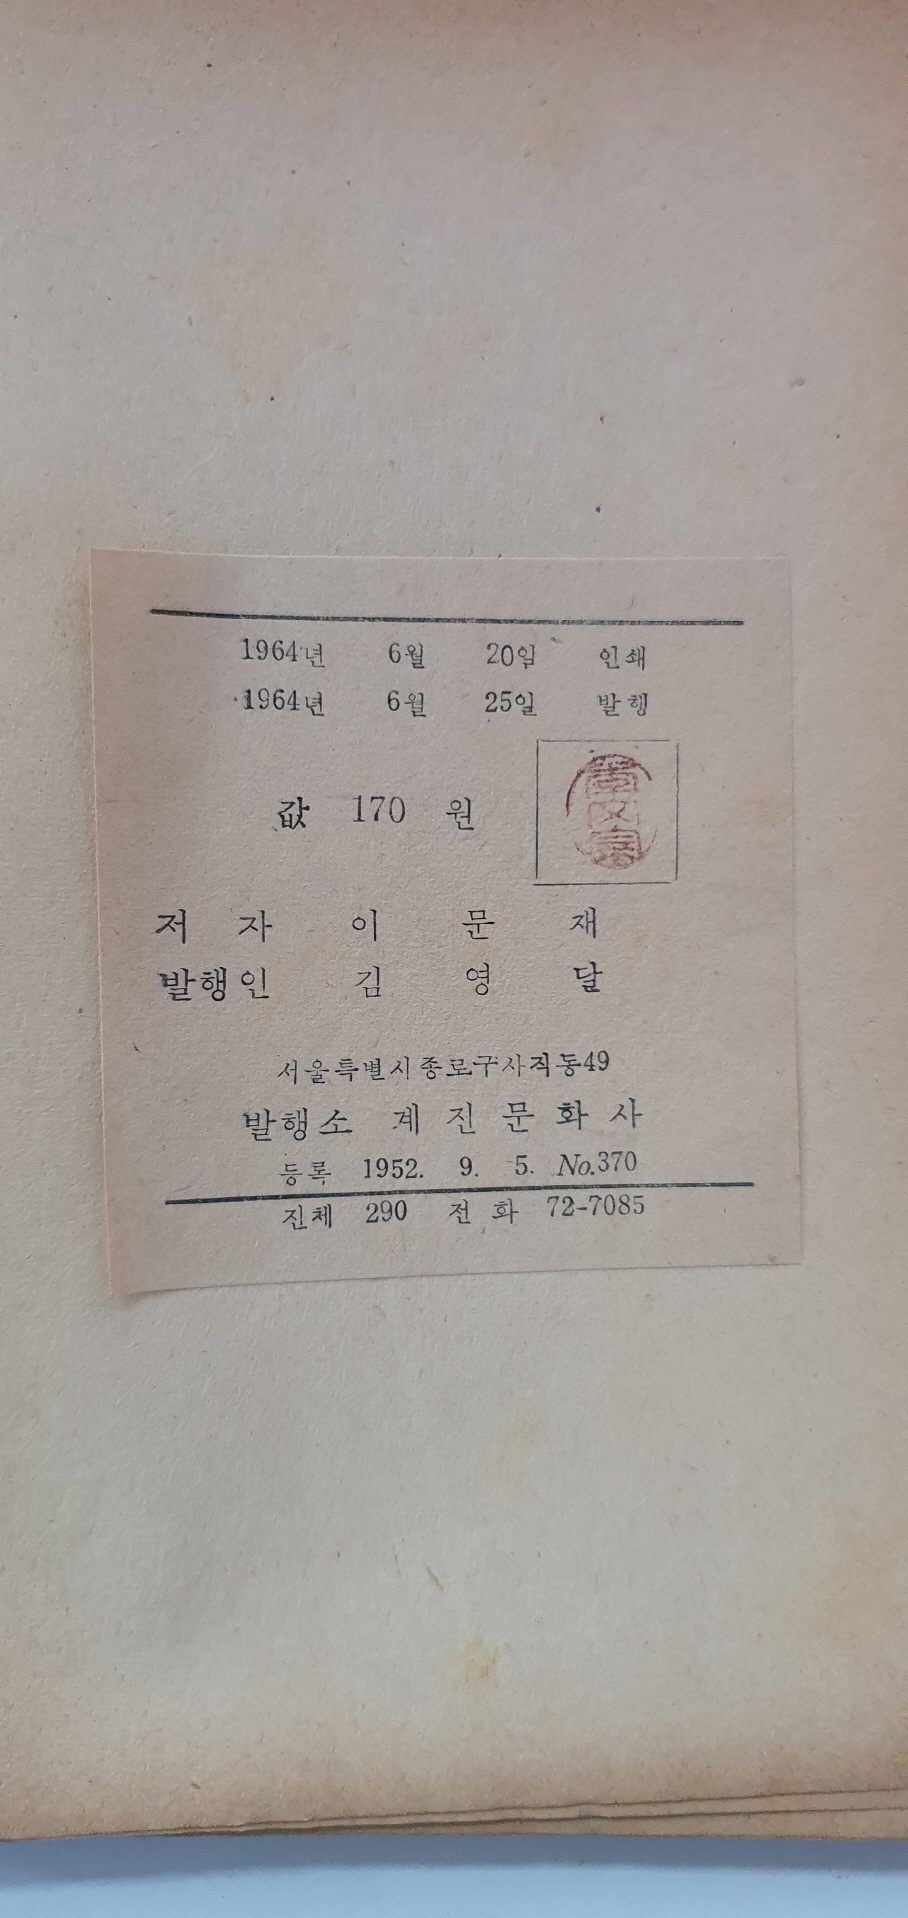 1964년 6월 20일 인쇄
1964년 6월 25일 발행
값 170 원
저 자 이 문 재
발행인 김 영 달
서울특별시종로구사직동49
발행소 계 진 문 화 사
등록 1952. 9. 5. No.370
진체 290 전 화 72-7085